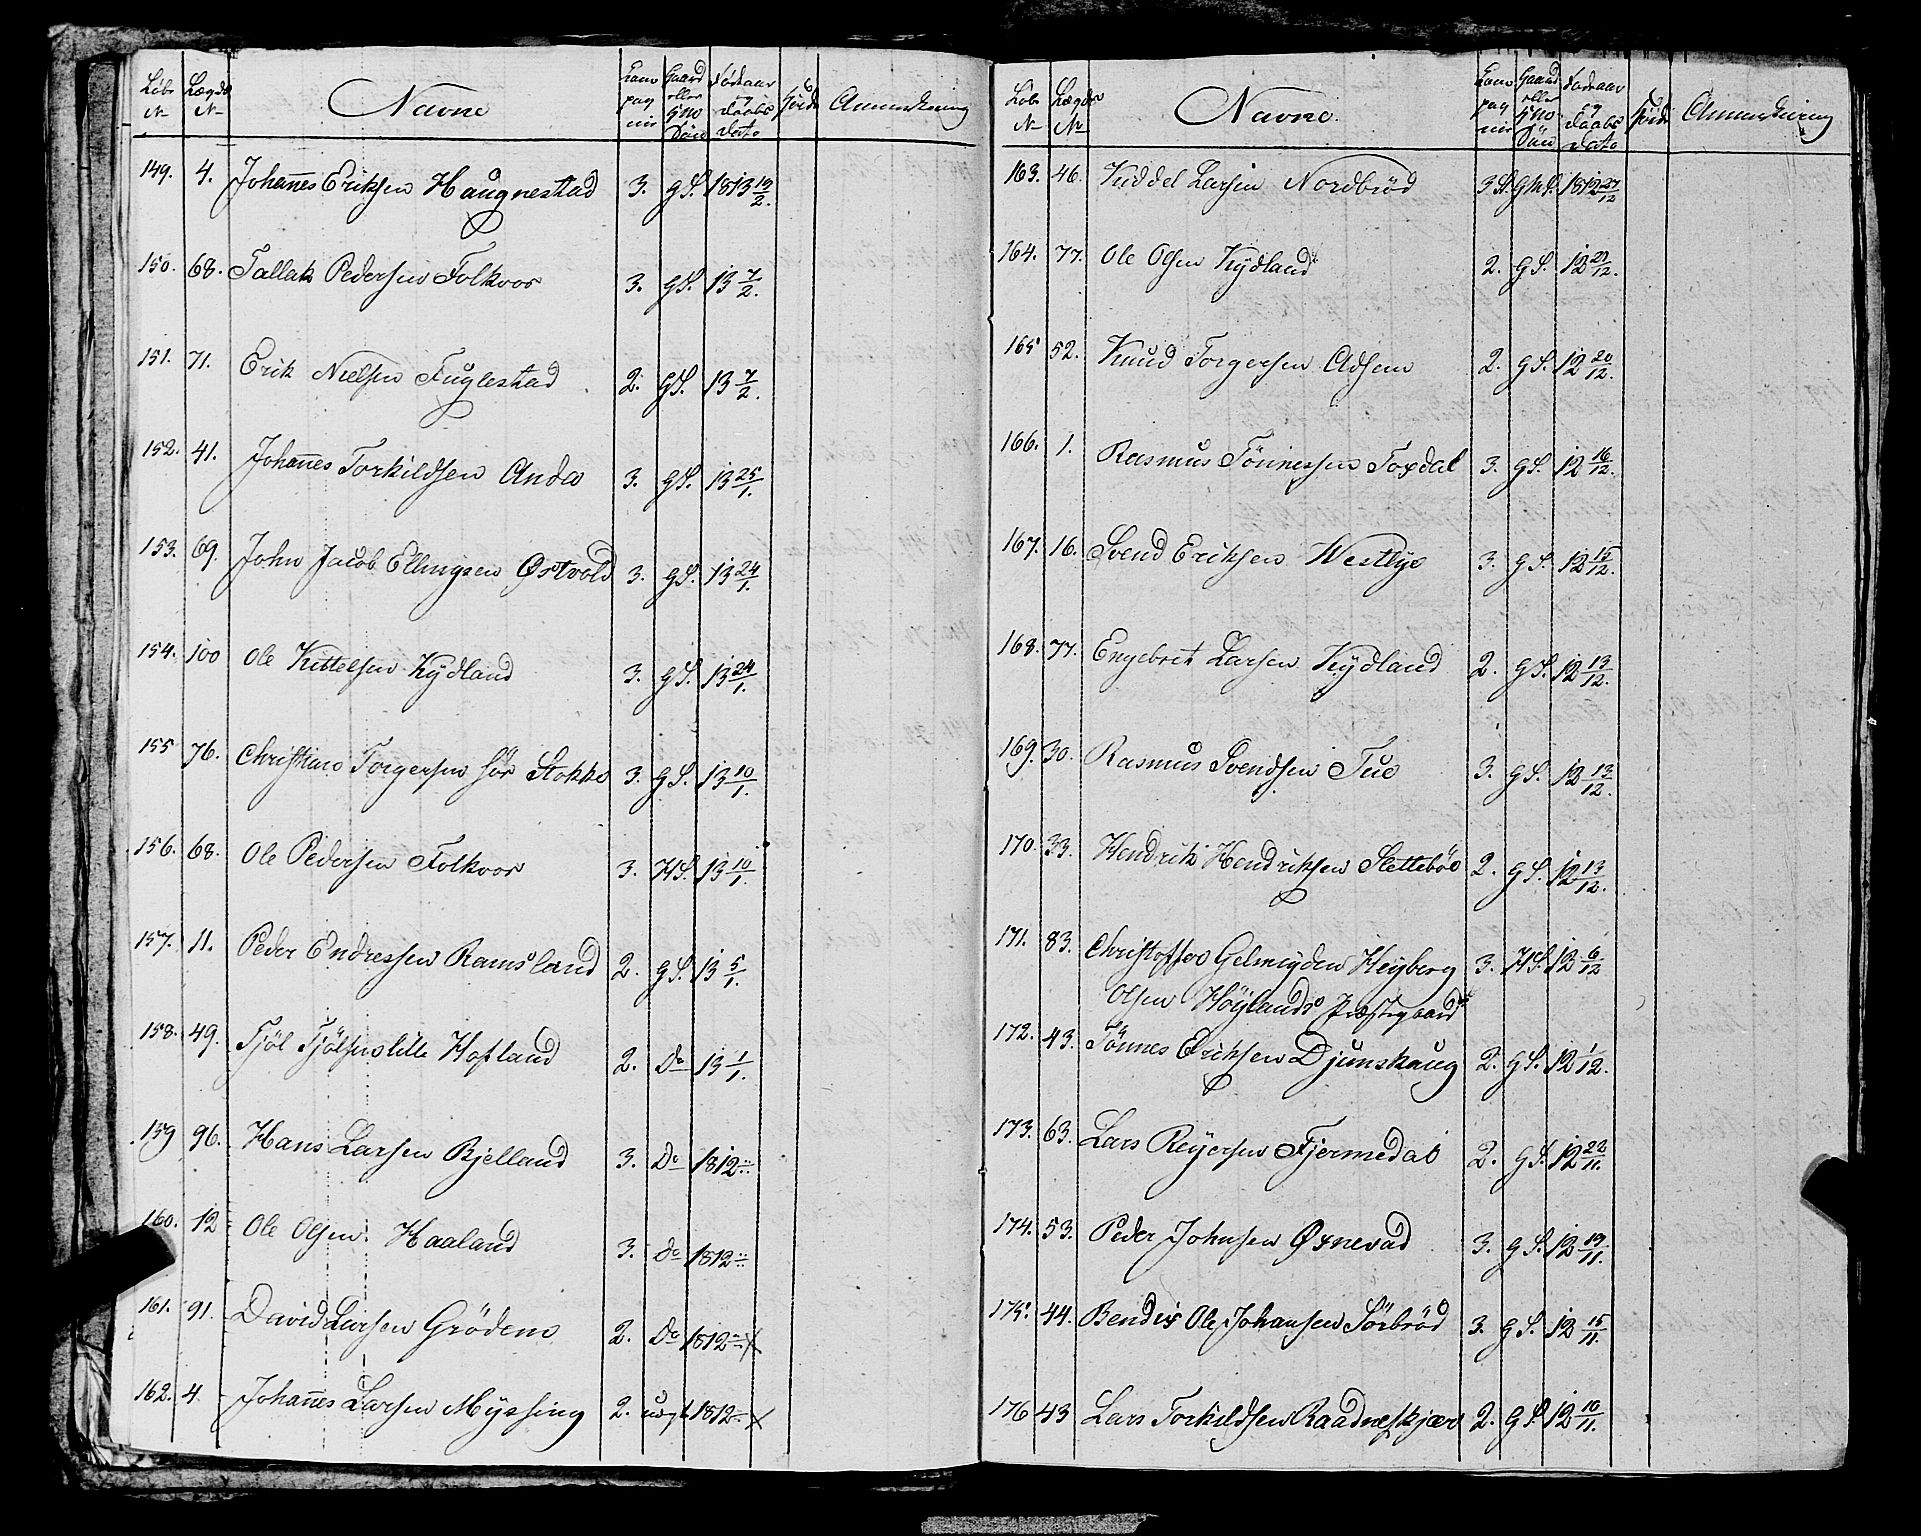 Løbe Lægds Navne Com Gaard Fødeaar Höide Anmærkning
N° N° pag eller og
nie Huus Daabs
Søn Dato
149. 4. Johannes Eriksen Haugnestad 3. GS. 1813 19/2.
150. 68. Tallak Pedersen Folkvor 3. GS. 13 7/2.
151. 71. Erik Nielsen Fuglestad 2. GS. 13 7/2.
152. 41. Johannes Torkildsen Anda 3. GS. 13 25/1.
153. 69. John Jacob Ellingsen Østvold 3. GS. 13 24/1.
154. 100 Ole Kittelsen Kydland 3. GS. 13 24/1.
155 76. Christian Torgersen sör Stokke 3. GS. 13 10/1.
156. 68. Ole Pedersen Folkvor 3. HS. 13 10/1.
157. 11. Peder Endressen Ramsland 2. GS. 13 5/1.
158. 49. Tjöl Tjölsen lille Hofland 2. Do 13 1/1.
159 96. Hans Larsen Bjelland 3. Do 1812
160. 12 Ole Olsen Haaland 3. Do 1812
161. 91. David Larsen Grödem 2. Do 1812 X
162. 4. Johannes Larsen Myssing 2. udgt 1812 X
Løbe Lægds Navne. Com Gaard Fødeaar Höide Anmærkning
N° N° pag eller og
nie Huus Daabs
Søn Dato
163. 46. Larsen Nordbröd 3 S. GMS. 1812 27/12
164. 77. Ole Olsen Kydland 2. GS. 12 27/12.
165 52. Knud Torgersen Adsem 2. GS. 12 20/12.
166. 1. Rasmus Tönnessen Toxdal 3. GS. 12 16/12.
167. 16. Svend Eriksen Westlye 3. GS. 12 15/12.
168. 77. Engebret Larsen Kydland 2. GS. 12 13/12.
169. 30. Rasmus Svendsen Tue 3. GS. 12 13/12.
170. 33. Hendrik Hendriksen Sletteböe 2. GS. 12 13/12.
171. 83. Christoffer Gelmeyden Heyberg 3. HS. 12 6/12
Olsen Höylands Præstegaard
172. 43. Tönnes Eriksen Djunskaug 2. GS. 12 1/12.
173. 63. Lars Reyersen Fjermedal 2. GS. 12 22/11.
174. 53. Peder Johnsen Øsnevad 3. GS. 12 19/11.
175. 44. Bendix Ole Johansen Sörbröd 3. GS. 12 15/11.
176 43 Lars Torkildsen Raadneskjær 2. GS. 12 10/11.